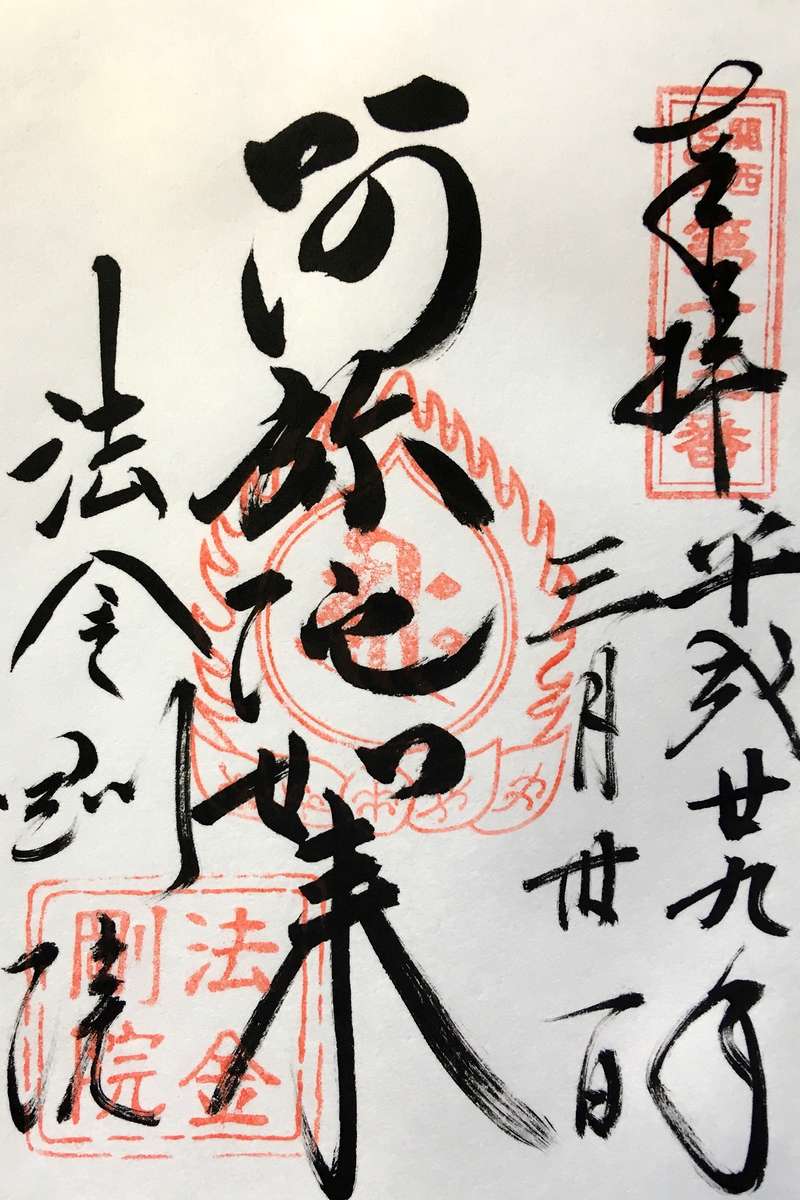 關西
第十三番
奉拝
平成廿九年
三月卅日
阿弥陀如来
法金剛院
法金
剛院